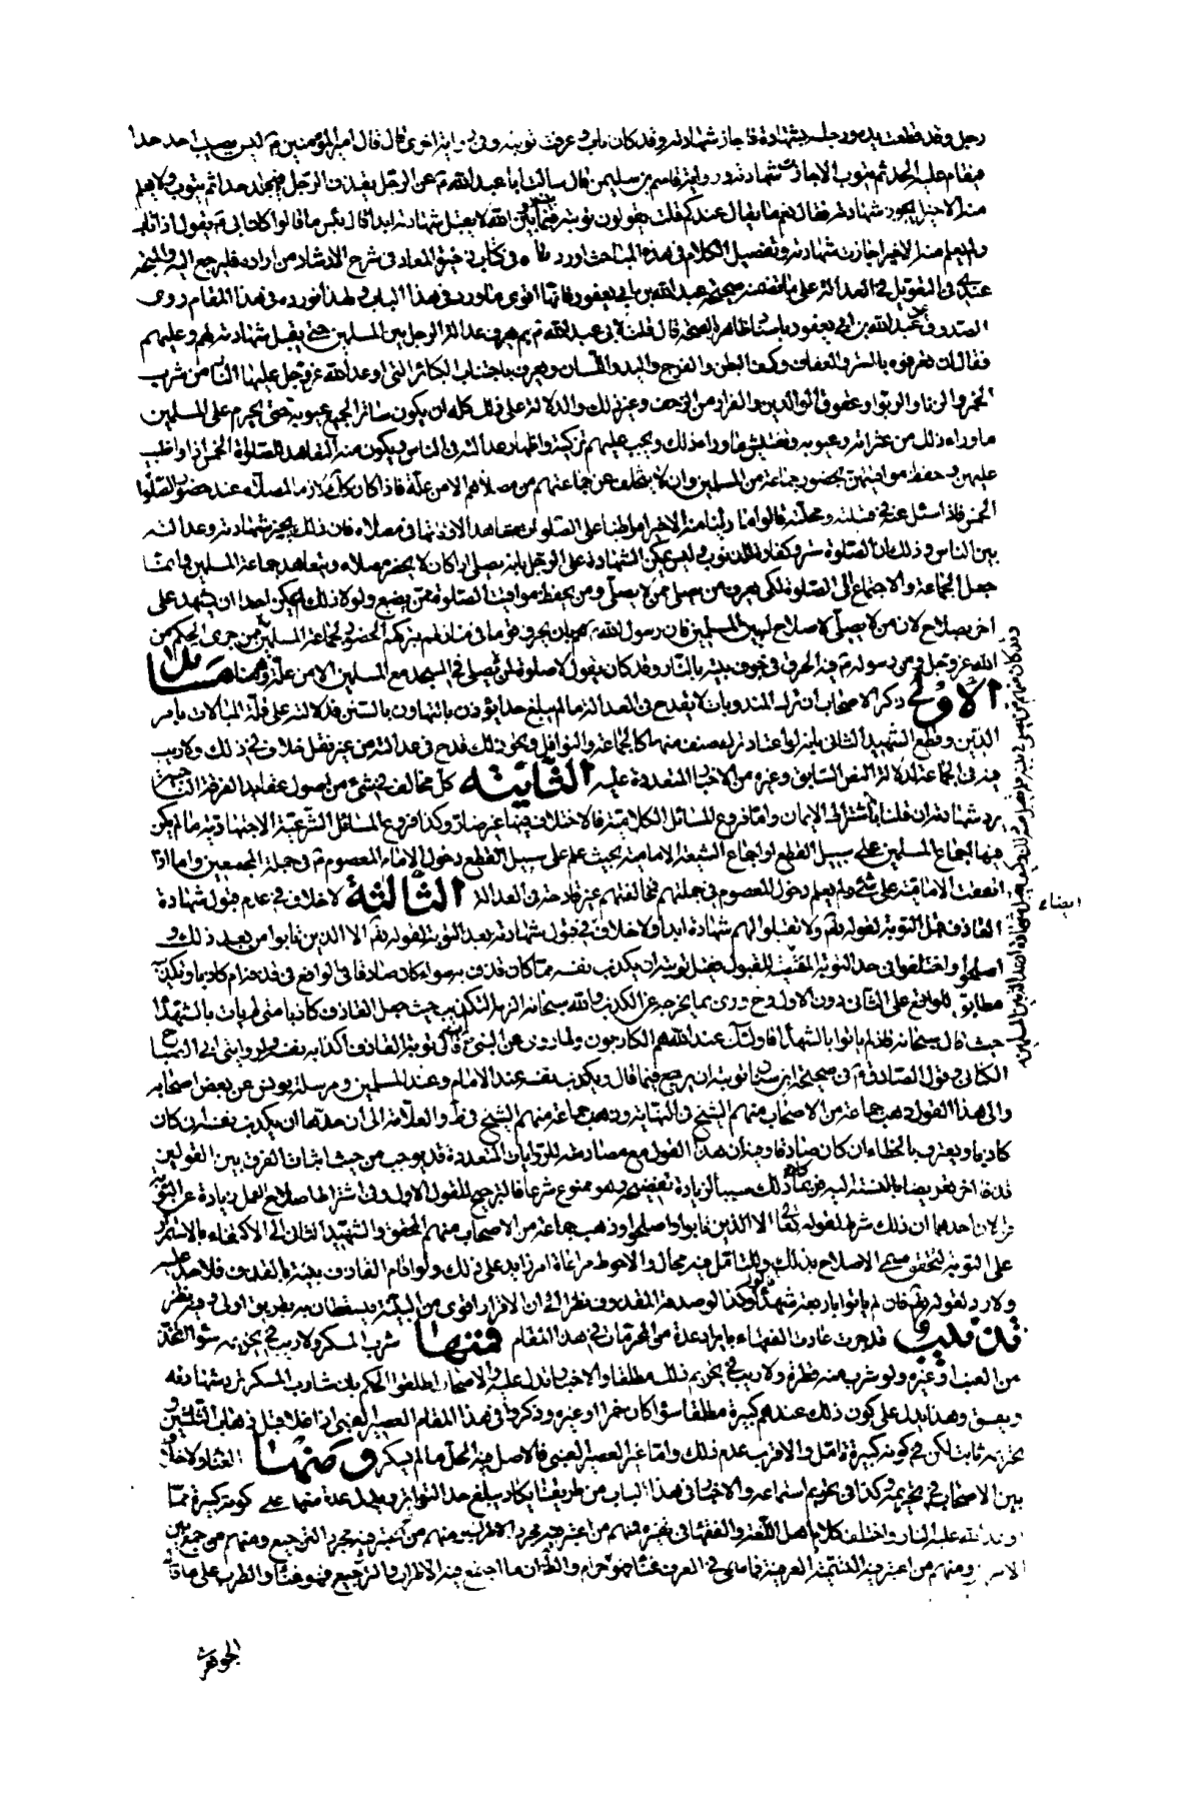 رجل وقد قطعت يده ورجله بشهادة فاجاز شهادته وقد كان تاب وعرفت توبته وفي رواية اخرى قال قال امير المؤمنين ع ليس يصيب احد حدا
فيقام عليه الحد ثم يتوب الا جازت شهادته ورواية قاسم بن سليمن قال سالت ابا عبد الله ع عن الرجل يقذف الرجل فيجلد حدا ثم يتوب ولا يعلم
منه الا خيرا يجوز شهادته فقال نعم ما يقال عندكم قلت يقولون توبته فيما بينه وبين الله لا يقبل شهادته ابدا قال بئس ما قالوا كان ابي ع يقول اذا تاب
ولم يعلم منه الا خيرا جازت شهادته وتفصيل الكلام في هذه المباحث اوردناه في كتاب ذخيرة المعاد في شرح الارشاد من اراده فليرجع اليه والمتجه
عندي التعويل في العدالة على ما تضمنته صحيحة عبد الله بن ابي يعفور فانها اقوى ما ورد في هذا الباب ولهذا نورده في هذا المقام روى
الصدوق عن عبد الله بن ابي يعفور باسناد ظاهره الصحة قال قلت لابي عبد الله ع بم يعرف عدالة الرجل بين المسلمين حتى يقبل شهادته لهم وعليهم
فقال ان تعرفوه بالستر والعفاف وكف البطن والفرج واليد واللسان ويعرف باجتناب الكبائر التي اوعد الله عز وجل عليها النار من شرب
الخمر والزنا والربوا وعقوق الوالدين والفرار من الزحف وغير ذلك والدلالة على ذلك كله ان يكون ساترا لجميع عيوبه حتى يحرم على المسلمين
ما وراء ذلك من عثراته وعيوبه وتفتيش ما وراء ذلك ويجب عليهم تزكيته واظهار عدالته في الناس ويكون منه التعاهد للصلوة الخمس اذا واظب
عليهن وحفظ مواقيتهن بحضور جماعة من المسلمين وان لا يتخلف عن جماعتهم من مصلاهم الا من علة فاذا كان كذلك لازما لمصلاه عند حضور الصلوات
الخمس فاذا سئل عنه في قبيلته ومحلته قالوا ما راينا منه الا خيرا مواظبا على الصلوة متعاهدا لاوقاتها في مصلاه فان ذلك يجيز شهادته وعدالته
بين الناس وذلك ان الصلوة ستر وكفارة للذنوب وليس يمكن الشهادة على الرجل بانه يصلي اذا كان لا يحضر مصلاه ويتعاهد جماعة المسلمين وانما
جعل الجماعة والاجتماع الى الصلوة لكي يعرف من يصلي ممن لا يصلي ومن يحفظ مواقيت الصلوة ممن يضيع ولولا ذلك لم يمكن احدا ان يشهد على
اخر بصلاح لان من لا يصلي لا صلاح له بين المسلمين فان رسول الله ص هم بان يحرق قوما في منازلهم بتركهم الحضور لجماعة المسلمين من جرى الحكم من
الله عز وجل ومن رسوله ص فيه الحرق في جوف بيته بالنار وقد كان يقول لا صلوة لمن لا يصلي في المسجد مع المسلمين الا من علة وههنا مسائل
الاولى ذكر الاصحاب ان ترك المندوبات لا يقدح في العدالة ما لم يبلغ حدا يؤذن بالتهاون بالسنن فدلالته على قلة المبالات بامر
الدين وقطع الشهيد الثاني بانه لو اعتاد ترك صنف منها كالجماعة والنوافل ونحو ذلك قدح في عدالته من غير نقل خلاف في ذلك ولا ريب
فيه في الجماعة لدلالة النص السابق وغيره من الاخبار المتعددة عليه الثانية كل مخالف في شيء من اصول عقايد الفرقة الناجية
يرد شهادته ان قلنا باشتراط الايمان واما فروع المسائل الكلامية فالاختلاف فيها غير ضار وكذا فروع المسائل الشرعية الاجتهادية ما لم يكن
فيها اجماع المسلمين على سبيل القطع او اجماع الشيعة الامامية بحيث علم على سبيل القطع دخول الامام المعصوم ع في جملة المجمعين واما اذا
اتفقت الامامية على شيء ولم يعلم دخول المعصوم في جملتهم فمخالفتهم غير قادحة في العدالة الثالثة لا خلاف في عدم قبول شهادة
القاذف قبل التوبة لقوله تعم ولا تقبلوا لهم شهادة ابدا ولا خلاف في قبول شهادته بعد التوبة لقوله تعم الا الذين تابوا من بعد ذلك و
اصلحوا واختلفوا في حد التوبة المقتضية للقبول فقيل توبته ان يكذب نفسه مما كان قذف به سواء كان صادقا في الواقع في قذفه ام كاذبا ويكون تكذيبه
مطابق للواقع على الثاني دون الاول وح وري بما يخرجه عن الكذب والله سبحانه الزمه التكذيب حيث جعل القاذف كاذبا متى لم يات بالشهداء
حيث قال سبحانه فاذ لم ياتوا بالشهداء فاولئك عند الله هم الكاذبون ولما روي عن النبي ص انه قال توبة القاذف اكذابه نفسه ولرواية ابي الصباح
الكناني وقول الصادق ع في صحيحة ابن سنان توبته ان يرجع فيما قال ويكذب نفسه عند الامام وعند المسلمين ومرسلة يونس عن بعض اصحابه
والى هذا القول ذهب جماعة من الاصحاب منهم الشيخ في النهاية وذهب جماعة منهم الشيخ في ط والعلامة الى ان حدها ان يكذب نفسه ان كان
كاذبا ويعترف بالخطاء ان كان صادقا وفيه ان هذا القول مع مصادمته للروايات المتعددة قد يوجب من حيث اثبات الفرق بين القولين
قذفا اخر تعريضا بالنسبة اليه فربما كان ذلك سببا لزيادة تفضيحه وهو ممنوع شرعا فالترجيح للقول الاول وفي اشتراط اصلاح العمل زيادة عن التوبة
قولان احدهما ان ذلك شرط لقوله تعالى الا الذين تابوا واصلحوا وذهب جماعة من الاصحاب منهم المحقق والشهيد الثاني الى الاكتفاء بالاستمرار
على التوبة لتحقق معنى الاصلاح بذلك وللتامل فيه مجال والاحوط مراعاة امر زايد على ذلك ولو اقام القاذف بينة بالقذف فلا حد عليه
ولا رد لقوله تعم فان لم ياتوا باربعة شهداء وكذا لو صدقه المقذوف نظرا الى ان الاقرار اقوى من البينة يسقطان به بطريق اولى وفيه نظر
تذنيب قد جرت عادت الفقهاء بايراد عدة من المحرمات في هذا المقام فمنها شرب المسكر ولا ريب في تحريمه سواء اتخذ
من العنب او غيره ولو شرب منه قطرة ولا ريب في تحريم ذلك مطلقا والاخبار تدل عليه والاصحاب اطلقوا الحكم بان شارب المسكر ترد شهادته
ويفسق وهذا يدل على كون ذلك عندهم كبيرة مطلقا سواء كان خمرا او غيره وذكروا في هذا المقام العصير العنبي اذا غلا قبل ذهاب الثلثين و
تحريمه ثابت لكن في كونه كبيرة تامل والاقرب عدم ذلك واما غير العصير العنبي فالاصل فيه الحل ما لم يسكر ومنها الغناء ولا خلاف
بين الاصحاب في تحريمه وكذا في تحريم استماعه والاخبار في هذا الباب من طريقنا يكاد يبلغ حد التواتر ويدل عدة منها على كونه كبيرة مما
وعد الله عليه النار واختلف كلام اهل اللغة والفقهاء في تفسيره فمنهم من اعتبر فيه مجرد الاطراب ومنهم من اعتبر فيه مجرد الترجيع ومنهم من جمع بين
الامرين ومنهم من اعتبر فيه التسمية العرفية فما سمي في العرف غناء فهو حرام والظاهر ان ما اجتمع فيه الاطراب والترجيع فهو غناء والطرب على ما قال
ايضاء
الجوهري